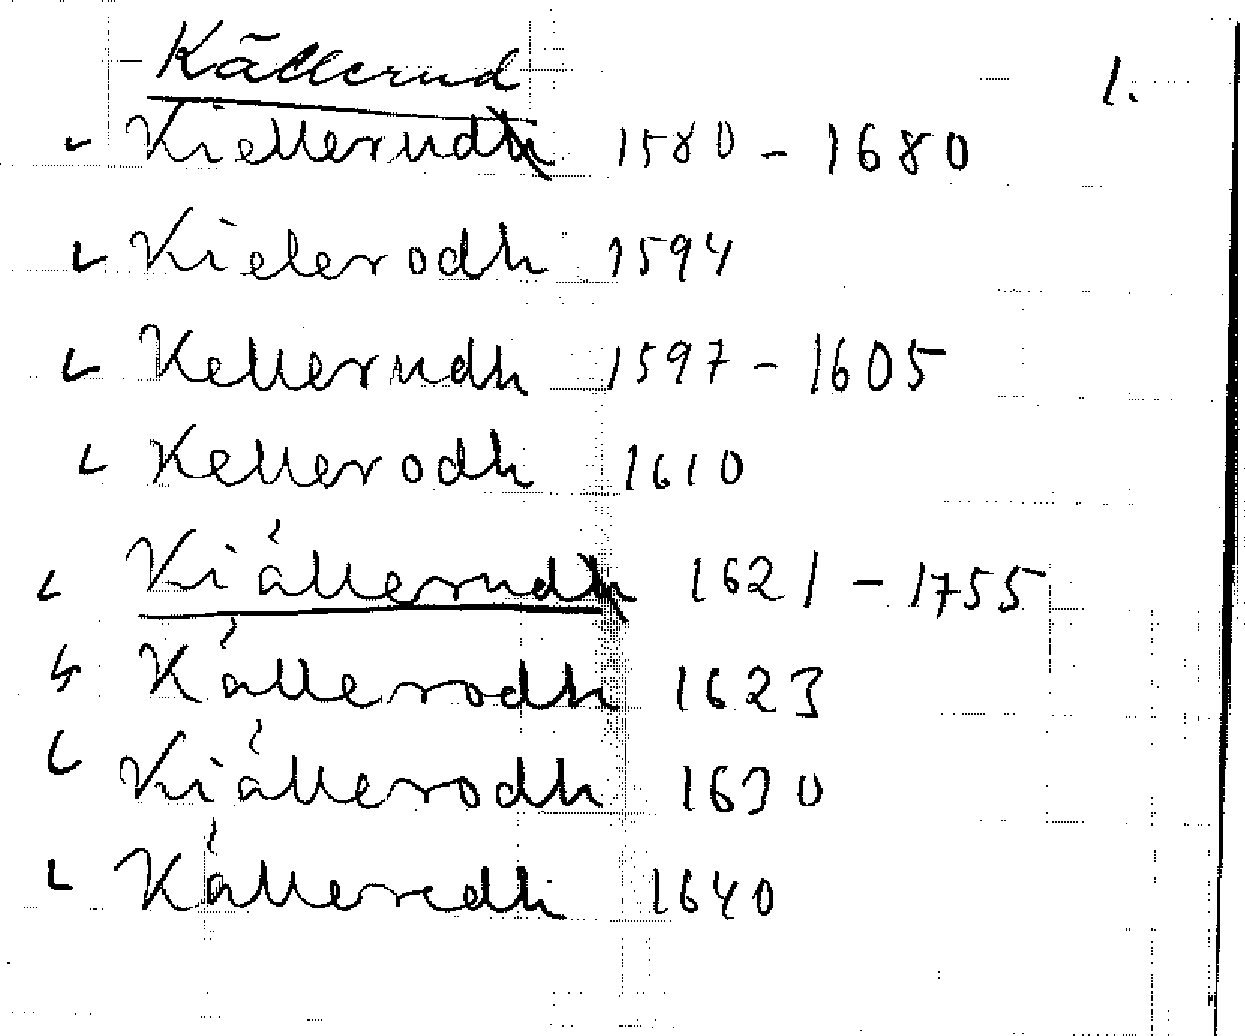 Källerud 1.
Kiellerud 1580 - 1680
Kielerodh 1594
Kellerudh 1597 - 1605
Kellerodh 1610
Kiällerud 1621 - 1755
Källerodh 1623
Kiällerodh 1630
Källeredh 1640